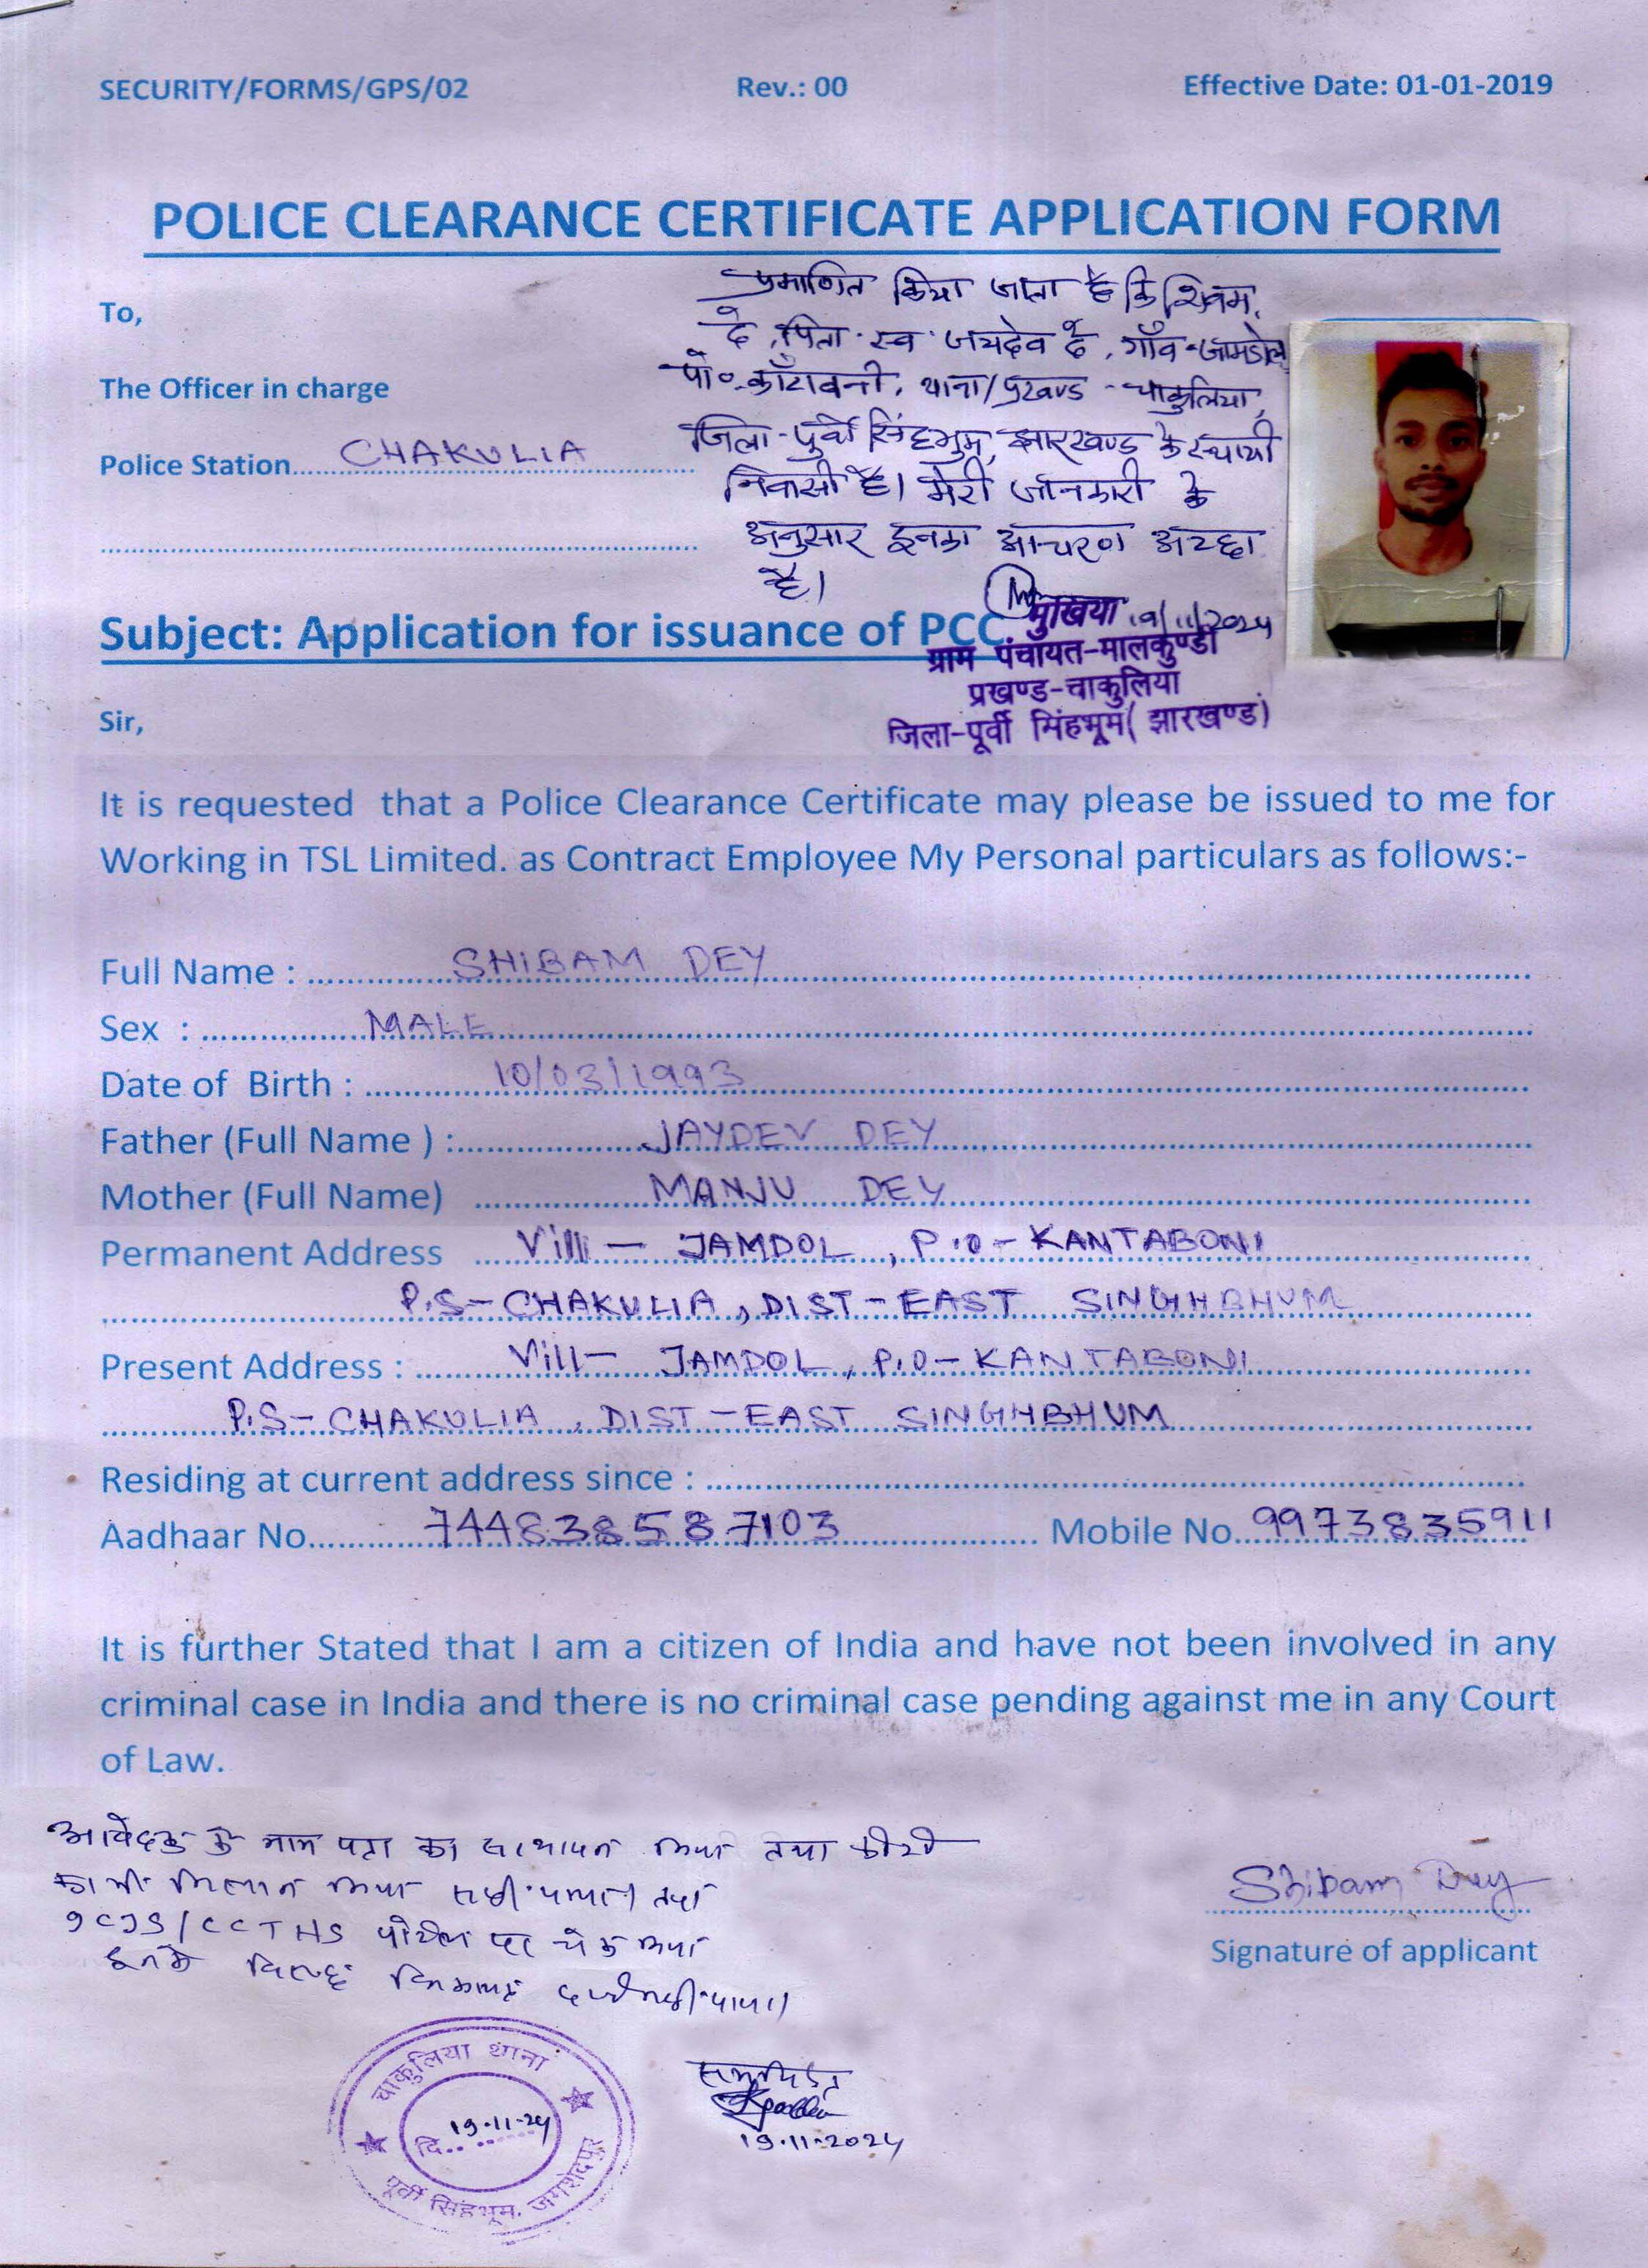 SECURITY/FORMS/GPS/02 Rev.: 00 Effective Date: 01-01-2019
POLICE CLEARANCE CERTIFICATE APPLICATION FORM
प्रमाणित किया जाता है कि शिवम
दे, पिता-स्व जयदेव दे, गाँव-जामडोल
पो०-काँटावनी, थाना/प्रखण्ड - चाकुलिया,
जिला-पुर्वी सिंहभुम, झारखण्ड के स्थायी
निवासी है। मेरी जानकारी के
अनुसार इनका आचरण अच्छा
है।
मुखिया 19/11/2024
ग्राम पंचायत-मालकुण्डी
प्रखण्ड-चाकुलिया
जिला-पूर्वी सिंहभूम( झारखण्ड)
To,
The Officer in charge
Police Station CHAKULIA
Subject: Application for issuance of PCC
Sir,
It is requested that a Police Clearance Certificate may please be issued to me for
Working in TSL Limited. as Contract Employee My Personal particulars as follows:-
Full Name : SHIBAM DEY
Sex : MALE
Date of Birth : 10/03/1993
Father (Full Name ) : JAYDEV DEY
Mother (Full Name) MANJU DEY
Permanent Address Vill - JAMDOL, P.O - KANTABONI
P.S - CHAKULIA, DIST - EAST SINGHBHUM
Present Address : Vill - JAMDOL, P.O - KANTABONI
P.S - CHAKULIA, DIST - EAST SINGHBHUM
Residing at current address since :
Aadhaar No. 744838587103 Mobile No. 9973835911
It is further Stated that I am a citizen of India and have not been involved in any
criminal case in India and there is no criminal case pending against me in any Court
of Law.
आवेदक के नाम पता का सत्यापन किया तथा
का भी मिलान किया सही पाया। तथा
पोर्टल पर चेक किया
इनके विरूद्ध
Shibam Dey
Signature of applicant
चाकुलिया थाना
दि. 19-11-24
पूर्वी सिंहभूम, जमशेदपुर
19.11.2024